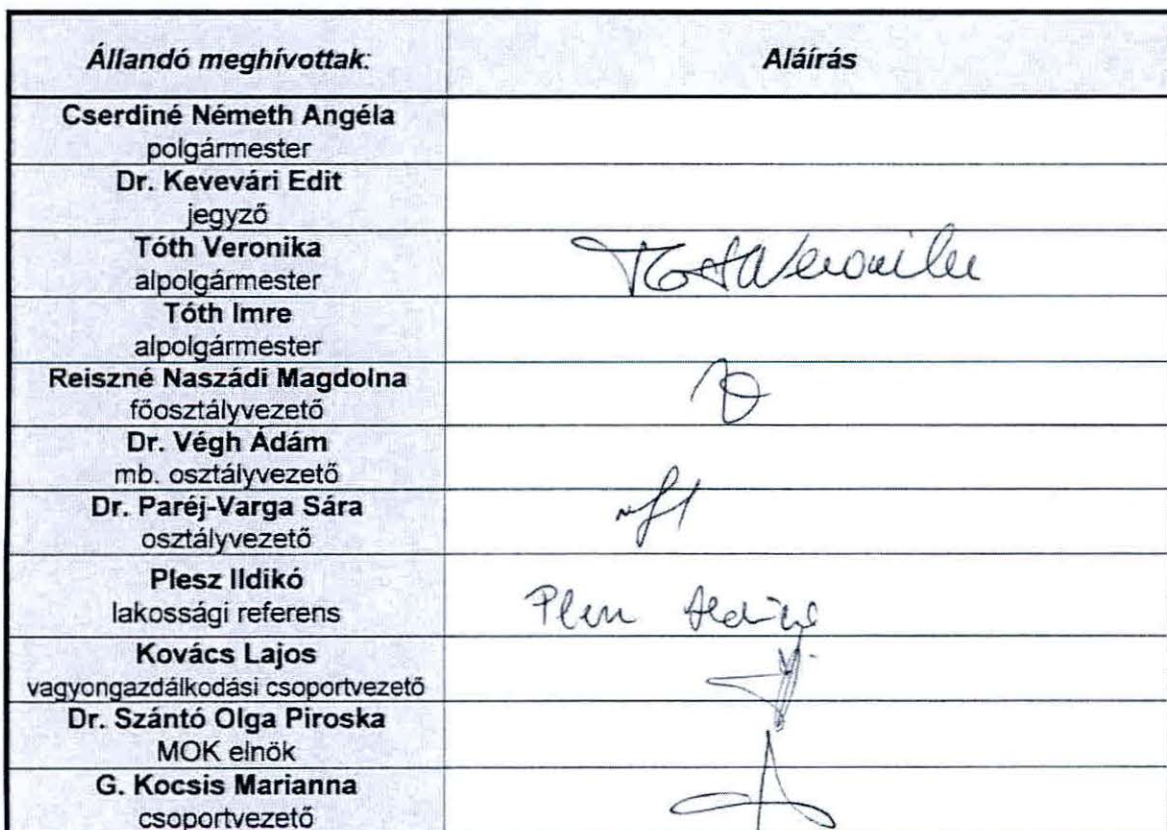 Állandó meghívottak:
Aláírás
Cserdiné Németh Angéla
polgármester
Dr. Kevevári Edit
jegyző
Tóth Veronika
alpolgármester
Tóth Veronika
Tóth Imre
alpolgármester
Reiszné Naszádi Magdolna
főosztályvezető
Dr. Végh Ádám
mb. osztályvezető
Dr. Paréj-Varga Sára
osztályvezető
Plesz Ildikó
lakossági referens
Plesz Ildikó
Kovács Lajos
vagyongazdálkodási csoportvezető
Dr. Szántó Olga Piroska
MOK elnök
G. Kocsis Marianna
csoportvezető